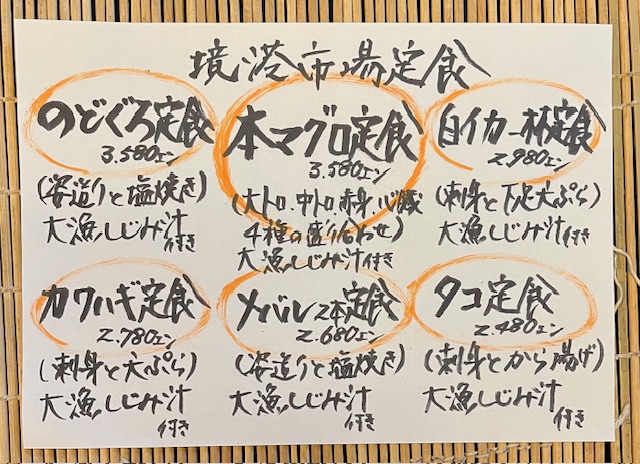 境港市場定食
のどぐろ定食
3.580エン
(姿造りと塩焼き)
大漁しじみ汁
付き
本マグロ定食
3.580エン
(大トロ、中トロ赤身心臓
4種の盛り合わせ)
大漁しじみ汁付き
白イカ一杯定食
2.980エン
(刺身と下足天ぷら)
大漁しじみ汁付き
カワハギ定食
2.780エン
(刺身と天ぷら)
大漁しじみ汁
付き
メバル2本定食
2.680エン
(姿造りと塩焼き)
大漁しじみ汁
付き
タコ定食
2.480エン
(刺身とから揚げ)
大漁しじみ汁
付き